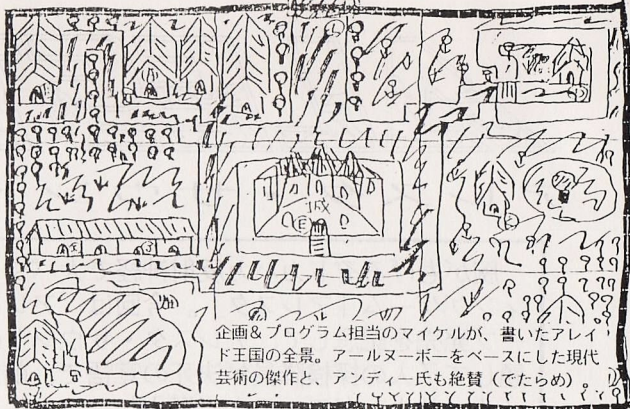 城
E
企画&プログラム担当のマイケルが、書いたアレイ
ド王国の全景。アールヌーボーをベースにした現代
芸術の傑作と、アンディー氏も絶賛(でたらめ)。